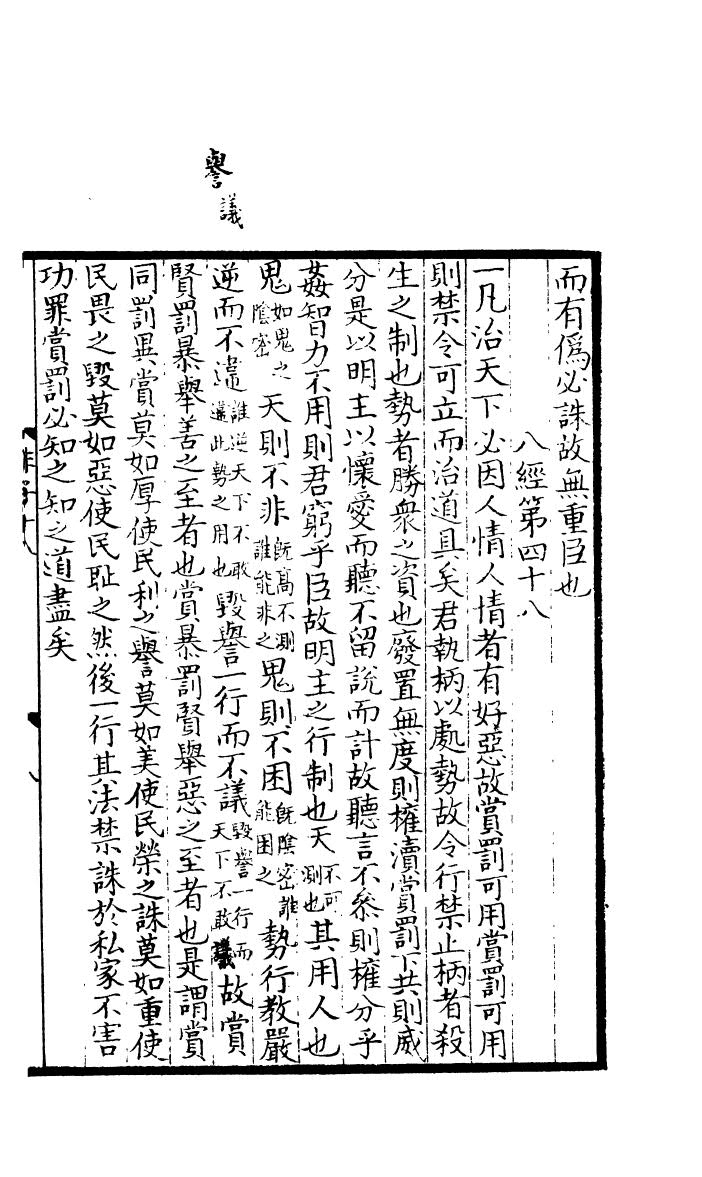 譽
議
而有僞必誅故無重臣也
八經第四十八
一凡治天下必因人情人情者有好惡故賞罰可用賞罰可用
則禁令可立而治道具矣君執柄以處勢故令行禁止柄者殺
生之制也勢者勝衆之資也廢置無度則權瀆賞罰下共則威
分是以明主以懷愛而聽不留說而計故聽言不叅則權分乎
姦智力不用則君窮乎臣故明主之行制也天不可測也其用人也
鬼如鬼之陰密天則不非旣高不測誰能非之鬼則不困旣陰密誰能困之勢行教嚴
逆而不違誰逆天下不敢違此勢之用也毀譽一行而不議毀譽一行而天下不敢議故賞
賢罰暴舉善之至者也賞暴罰賢舉惡之至者也是謂賞
同罰異賞莫如厚使民利之譽莫如美使民榮之誅莫如重使
民畏之毀莫如惡使民耻之然後一行其法禁誅於私家不害
功罪賞罰必知之知之道盡矣